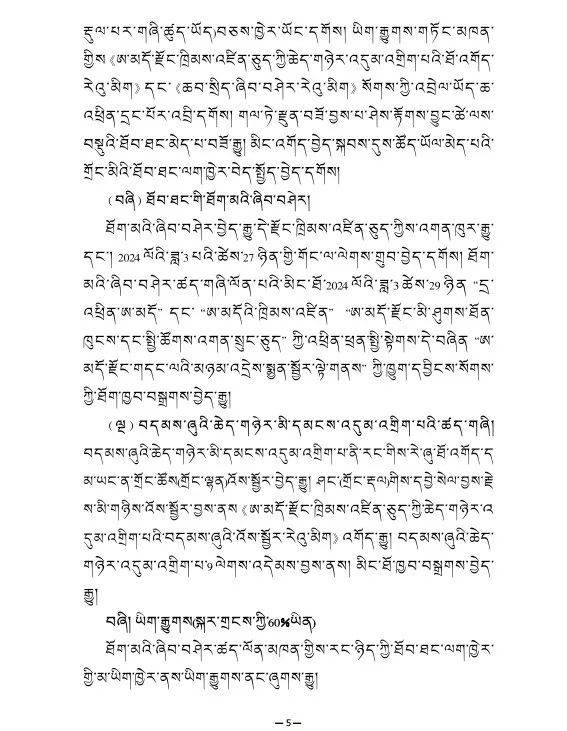 རྡུལ་པར་གཞི་ཚུད་ཡོད)བཅས་ཁྱེར་ཡོང་དགོས། ཡིག་རྒྱུགས་གཏོང་མཁན་
གྱིས《ཨ་མདོ་རྫོང་ཁྲིམས་འཛིན་ཅུད་ཀྱི་ཆེད་གཉེར་འདུམ་འགྲིག་པའི་ཐོ་འགོད་
རེའུ་མིག》དང་《ཆབ་སྲིད་ཞིབ་བཤེར་རེའུ་མིག》སོགས་ཀྱི་འབྲེལ་ཡོད་ཆ་
འཕྲིན་དྲང་པོར་འབྲི་དགོས། གལ་ཏེ་རྫུན་བཟོ་བྱས་པ་ཤེས་རྟོགས་བྱུང་ཚེ་ལས་
བསྡུའི་ཐོབ་ཐང་མེད་པ་བཟོ་རྒྱུ། མིང་འགོད་བྱེད་སྐབས་དུས་ཚོད་ཡོལ་མེད་པའི་
གྲོང་མིའི་ཐོབ་ཐང་ལག་ཁྱེར་བེད་སྤྱོད་བྱེད་དགོས།
(བཞི) ཐོབ་ཐང་གི་ཐོག་མའི་ཞིབ་བཤེར།
ཐོག་མའི་ཞིབ་བཤེར་བྱེད་རྒྱུ་དེ་རྫོང་ཁྲིམས་འཛིན་ཅུད་ཀྱིས་འགན་ཁུར་རྒྱུ་
དང་། 2024 ལོའི་ཟླ་3 པའི་ཚེས་27 ཉིན་གྱི་གོང་ལ་ལེགས་གྲུབ་བྱེད་དགོས། ཐོག་
མའི་ཞིབ་བཤེར་ཚད་གཞི་ལོན་པའི་མིང་ཐོ་2024 ལོའི་ཟླ་3 ཚེས་29 ཉིན “དྲ་
འཕྲིན་ཨ་མདོ” དང་ “ཨ་མདོའི་ཁྲིམས་འཛིན” “ཨ་མདོ་རྫོང་མི་ཤུགས་ཐོན་
ཁུངས་དང་སྤྱི་ཚོགས་འགན་སྲུང་ཅུད” ཀྱི་འཕྲིན་ཕྲན་སྤྱི་སྟེགས་དེ་བཞིན “ཨ་
མདོ་རྫོང་གདང་ལའི་མཉམ་འདྲེས་སྨྱན་སྦྱོར་ལྟེ་གནས” ཀྱི་ཁྱུག་དབྱིངས་སོགས་
ཀྱི་ཐོག་ཁྱབ་བསྒྲགས་བྱེད་རྒྱུ།
(ལྔ) བདམས་ཞུའི་ཆེད་གཉེར་མི་དམངས་འདུམ་འགྲིག་པའི་ཚད་གཞི།
བདམས་ཞུའི་ཆེད་གཉེར་མི་དམངས་འདུམ་འགྲིག་པ་ནི་རང་གིས་རེ་ཞུ་ཐོ་འགོད་ད
མ་ཡང་ན་གྲོང་ཚོས(གྲོང་ལྷན)འོས་སྦྱོར་བྱེད་རྒྱུ། ཤང(གྲོང་རྡལ)གིས་དབྱེ་སེལ་བྱས་རྗེ
ས་མི་གཉིས་འོས་སྦྱོར་བྱས་ནས《ཨ་མདོ་རྫོང་ཁྲིམས་འཛིན་ཅུད་ཀྱི་ཆེད་གཉེར་འ
དུམ་འགྲིག་པའི་བདམས་ཞུའི་འོས་སྦྱོར་རེའུ་མིག》འགོད་རྒྱུ། བདམས་ཞུའི་ཆེད་
གཉེར་འདུམ་འགྲིག་པ་9 ལེགས་འདེམས་བྱས་ནས། མིང་ཐོ་ཁྱབ་བསྒྲགས་བྱེད་
རྒྱུ།
བཞི། ཡིག་རྒྱུགས(སྐར་གྲངས་ཀྱི་60%ཡིན)
ཐོག་མའི་ཞིབ་བཤེར་ཚད་ལོན་མཁན་གྱིས་རང་ཉིད་ཀྱི་ཐོབ་ཐང་ལག་ཁྱེར་
གྱི་མ་ཡིག་ཁྱེར་ནས་ཡིག་རྒྱུགས་ནང་ཞུགས་རྒྱུ།
— 5 —